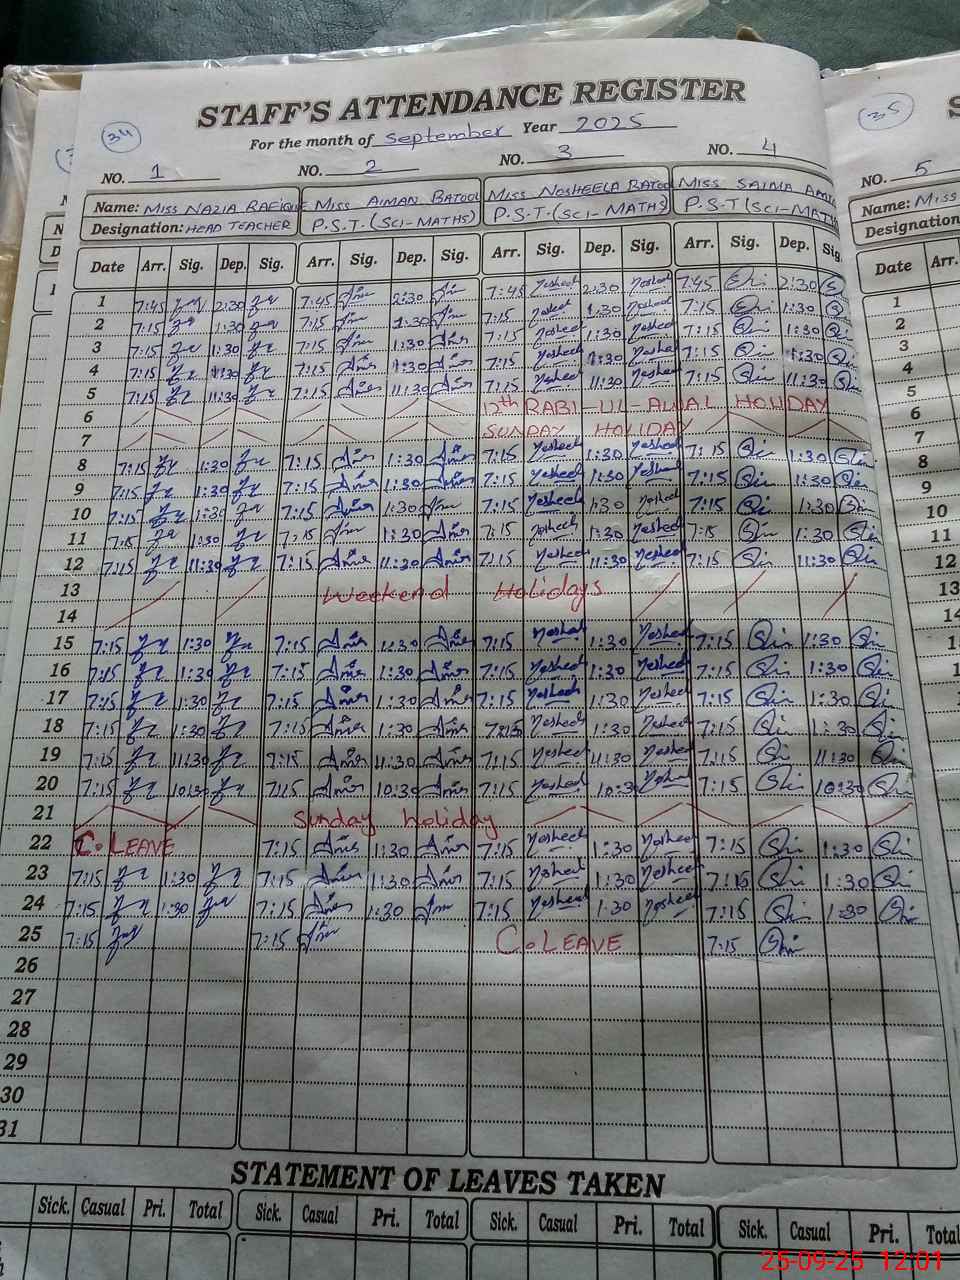 STAFF'S ATTENDANCE REGISTER
34
For the month of September Year 2025
35
NO. 1 NO. 2 NO. 3 NO. 4 NO. 5
Name: MISS NAZIA RAFIQUE Miss AIMAN BATOOL Miss NOSHEELA BATOOL Miss SAIMA Name: MISS
Designation: HEAD TEACHER P.S.T.(SCI-MATHS) P.S.T.(SCI-MATHS) P.S.T (SCI-MATHS) Designation
Date Arr. Sig. Dep. Sig. Arr. Sig. Dep. Sig. Arr. Sig. Dep. Sig. Arr. Sig. Dep. Sig. Date Arr.
1 7:45 2:30 7:45 2:30 7:45 Nosheel 2:30 Nosheel 7:45 2:30 1
2 7:15 1:30 7:15 1:30 7:15 Nosheel 1:30 Nosheel 7:15 1:30 2
3 7:15 1:30 7:15 1:30 7:15 Nosheel 1:30 Nosheel 7:15 1:30 3
4 7:15 1:30 7:15 1:30 7:15 Nosheel 1:30 Nosheel 7:15 1:30 4
5 7:15 11:30 7:15 11:30 7:15 Nosheel 11:30 Nosheel 7:15 11:30 5
6 12th RABI-UL-AWAL HOLIDAY 6
7 SUNDAY HOLIDAY 7
8 7:15 1:30 7:15 1:30 7:15 Nosheel 1:30 Nosheel 7:15 1:30 8
9 7:15 1:30 7:15 1:30 7:15 Nosheel 1:30 Nosheel 7:15 1:30 9
10 7:15 1:30 7:15 1:30 7:15 Nosheel 1:30 Nosheel 7:15 1:30 10
11 7:15 1:30 7:15 1:30 7:15 Nosheel 1:30 Nosheel 7:15 1:30 11
12 7:15 11:30 7:15 11:30 7:15 Nosheel 11:30 Nosheel 7:15 11:30 12
13 Weekend Holidays 13
14 14
15 7:15 1:30 7:15 1:30 7:15 Nosheel 1:30 Nosheel 7:15 1:30
16 7:15 1:30 7:15 1:30 7:15 Nosheel 1:30 Nosheel 7:15 1:30
17 7:15 1:30 7:15 1:30 7:15 Nosheel 1:30 Nosheel 7:15 1:30
18 7:15 1:30 7:15 1:30 7:15 Nosheel 1:30 Nosheel 7:15 1:30
19 7:15 11:30 7:15 11:30 7:15 Nosheel 11:30 Nosheel 7:15 11:30
20 7:15 10:30 7:15 10:30 7:15 Nosheel 10:30 Nosheel 7:15 10:30
21 Sunday holiday
22 C. LEAVE 7:15 1:30 7:15 Nosheel 1:30 Nosheel 7:15 1:30
23 7:15 1:30 7:15 1:30 7:15 Nosheel 1:30 Nosheel 7:15 1:30
24 7:15 1:30 7:15 1:30 7:15 Nosheel 1:30 Nosheel 7:15 1:30
25 7:15 7:15 C. LEAVE 7:15
26
27
28
29
30
31
STATEMENT OF LEAVES TAKEN
Sick. Casual Pri. Total Sick. Casual Pri. Total Sick. Casual Pri. Total Sick. Casual Pri. Total
25-09-25 12:01